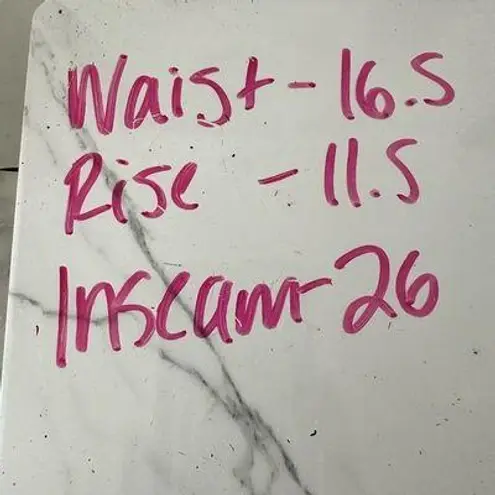 Waist - 16.5
Rise - 11.5
Inseam - 26